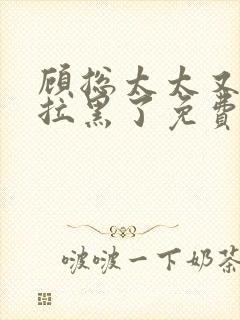 顾总太太又
拉黑了免费
啵啵一下奶茶